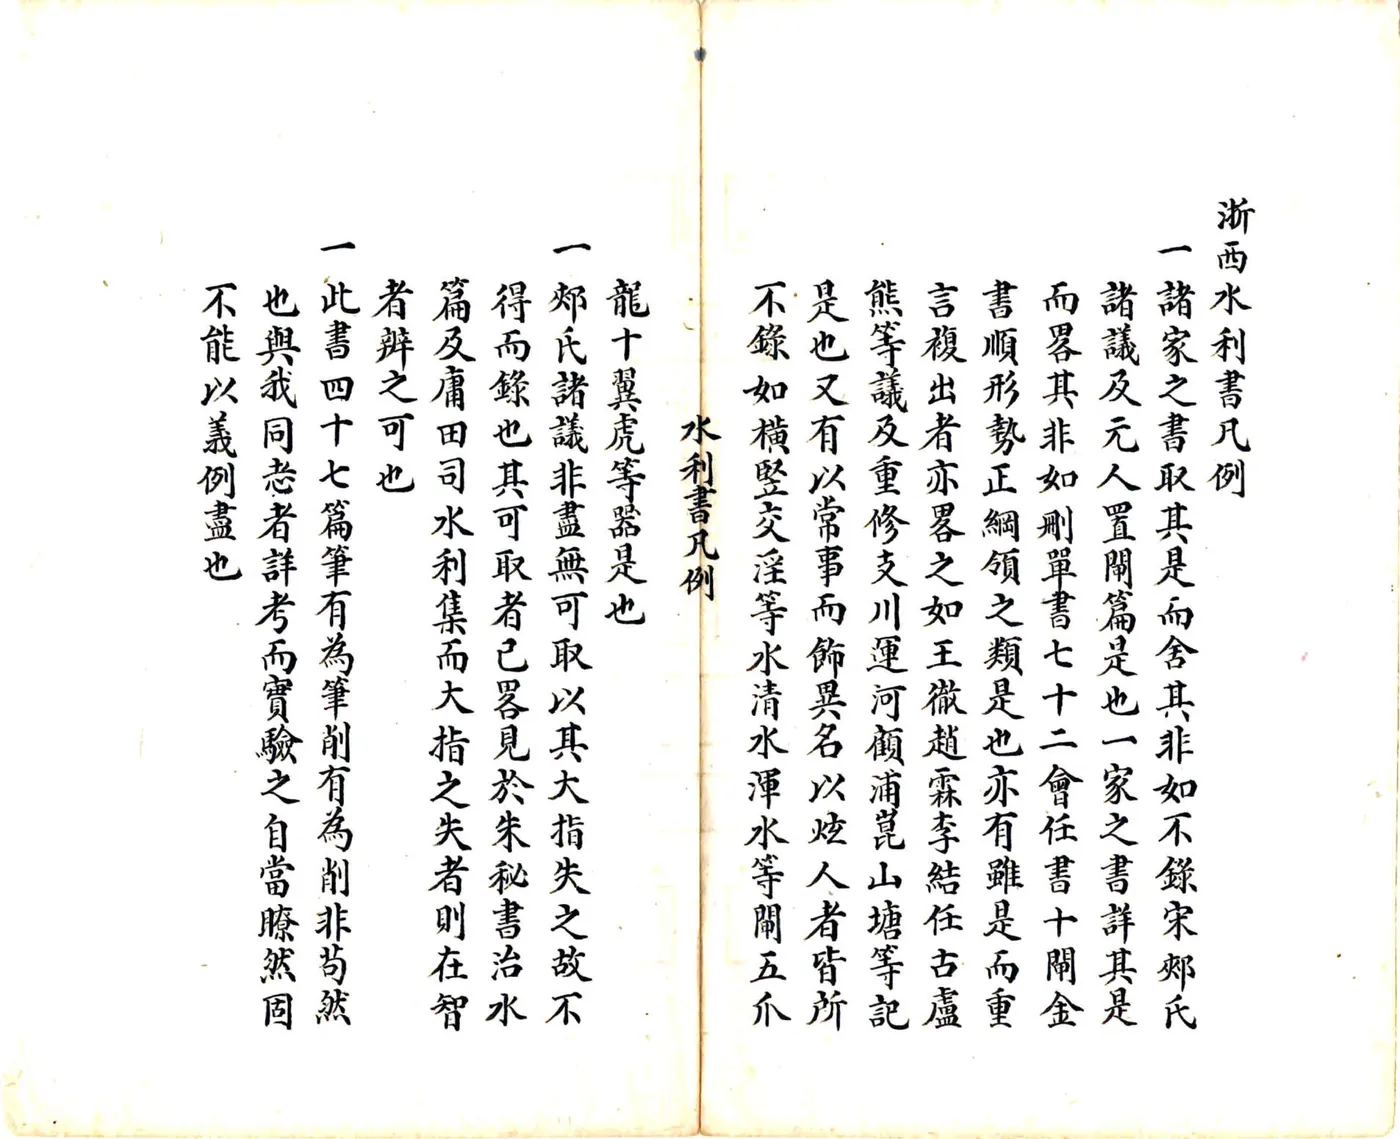 浙西水利書凡例
一諸家之書取其是而舍其非如不錄宋郟氏
諸議及元人置閘篇是也一家之書詳其是
而畧其非如刪單書七十二會任書十閘金
書順形勢正綱領之類是也亦有雖是而重
言複出者亦畧之如王徹趙霖李結任古盧
熊等議及重修支川運河顧浦崑山塘等記
是也又有以常事而飾異名以炫人者皆所
不錄如橫竪交淫等水清水渾水等閘五爪
水利書凡例
龍十翼虎等器是也
一郟氏諸議非盡無可取以其大指失之故不
得而錄也其可取者已畧見於朱秘書治水
篇及庸田司水利集而大指之失者則在智
者辨之可也
一此書四十七篇筆有為筆削有為削非苟然
也與我同志者詳考而實驗之自當瞭然固
不能以義例盡也